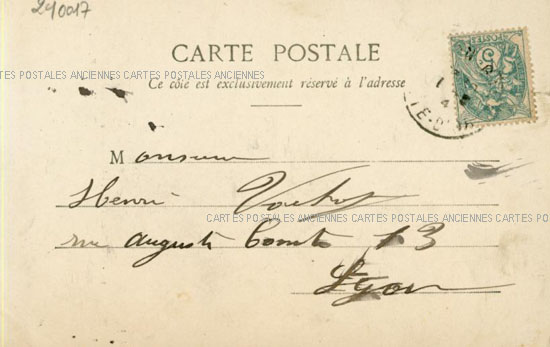 240017
CARTE POSTALE
CARTES POSTALES ANCIENNES CARTES POSTALES ANCIENNES CARTES POSTALES ANCIENNES CARTES POSTALES
Ce côté est exclusivement réservé à l'adresse
Monsieur
Henri
CARTES POSTALES ANCIENNES CARTES POSTALES ANCIENNES CARTES POS
rue Auguste Comte 13
Lyon